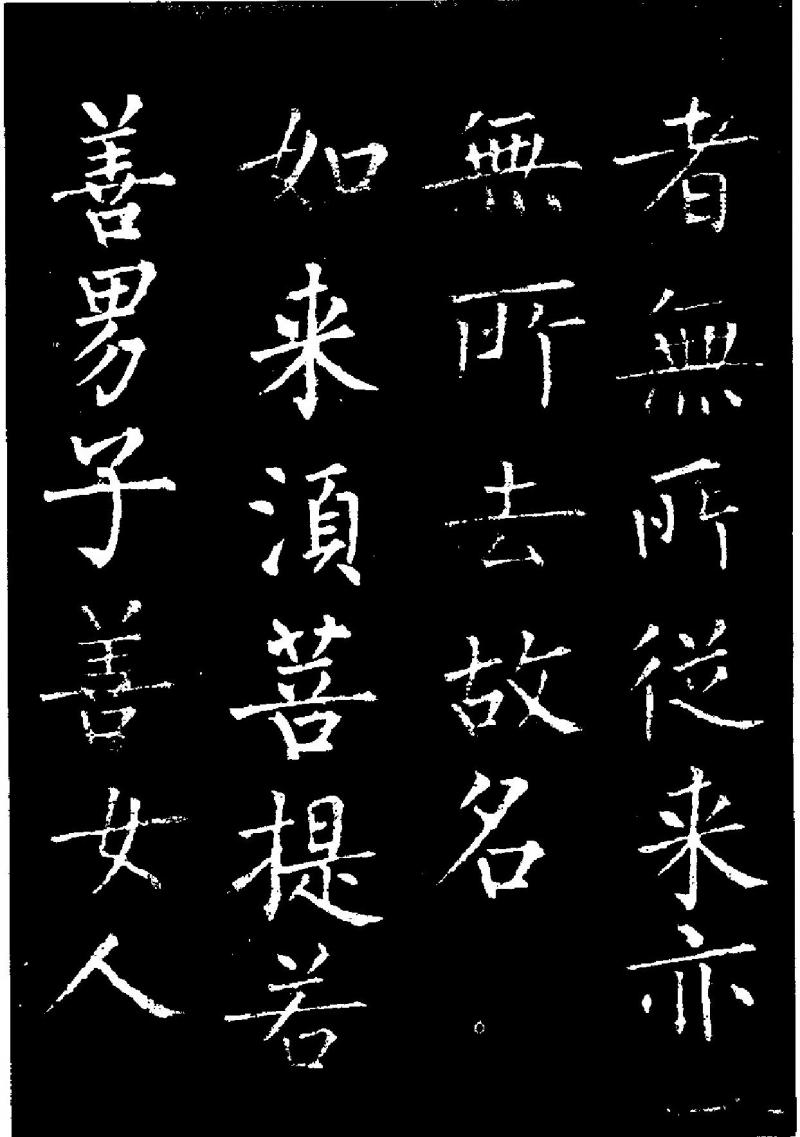 者無所従来亦
無所去故名
如来湏菩提若
善男子善女人